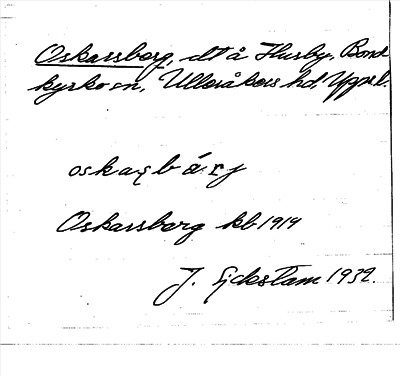 Oskarsberg, dt å Husby, Bond
kyrko sn, Ulleråkers hd, Uppsl.
Oskarsberg kb 1919
J. Ejckstam 1932.